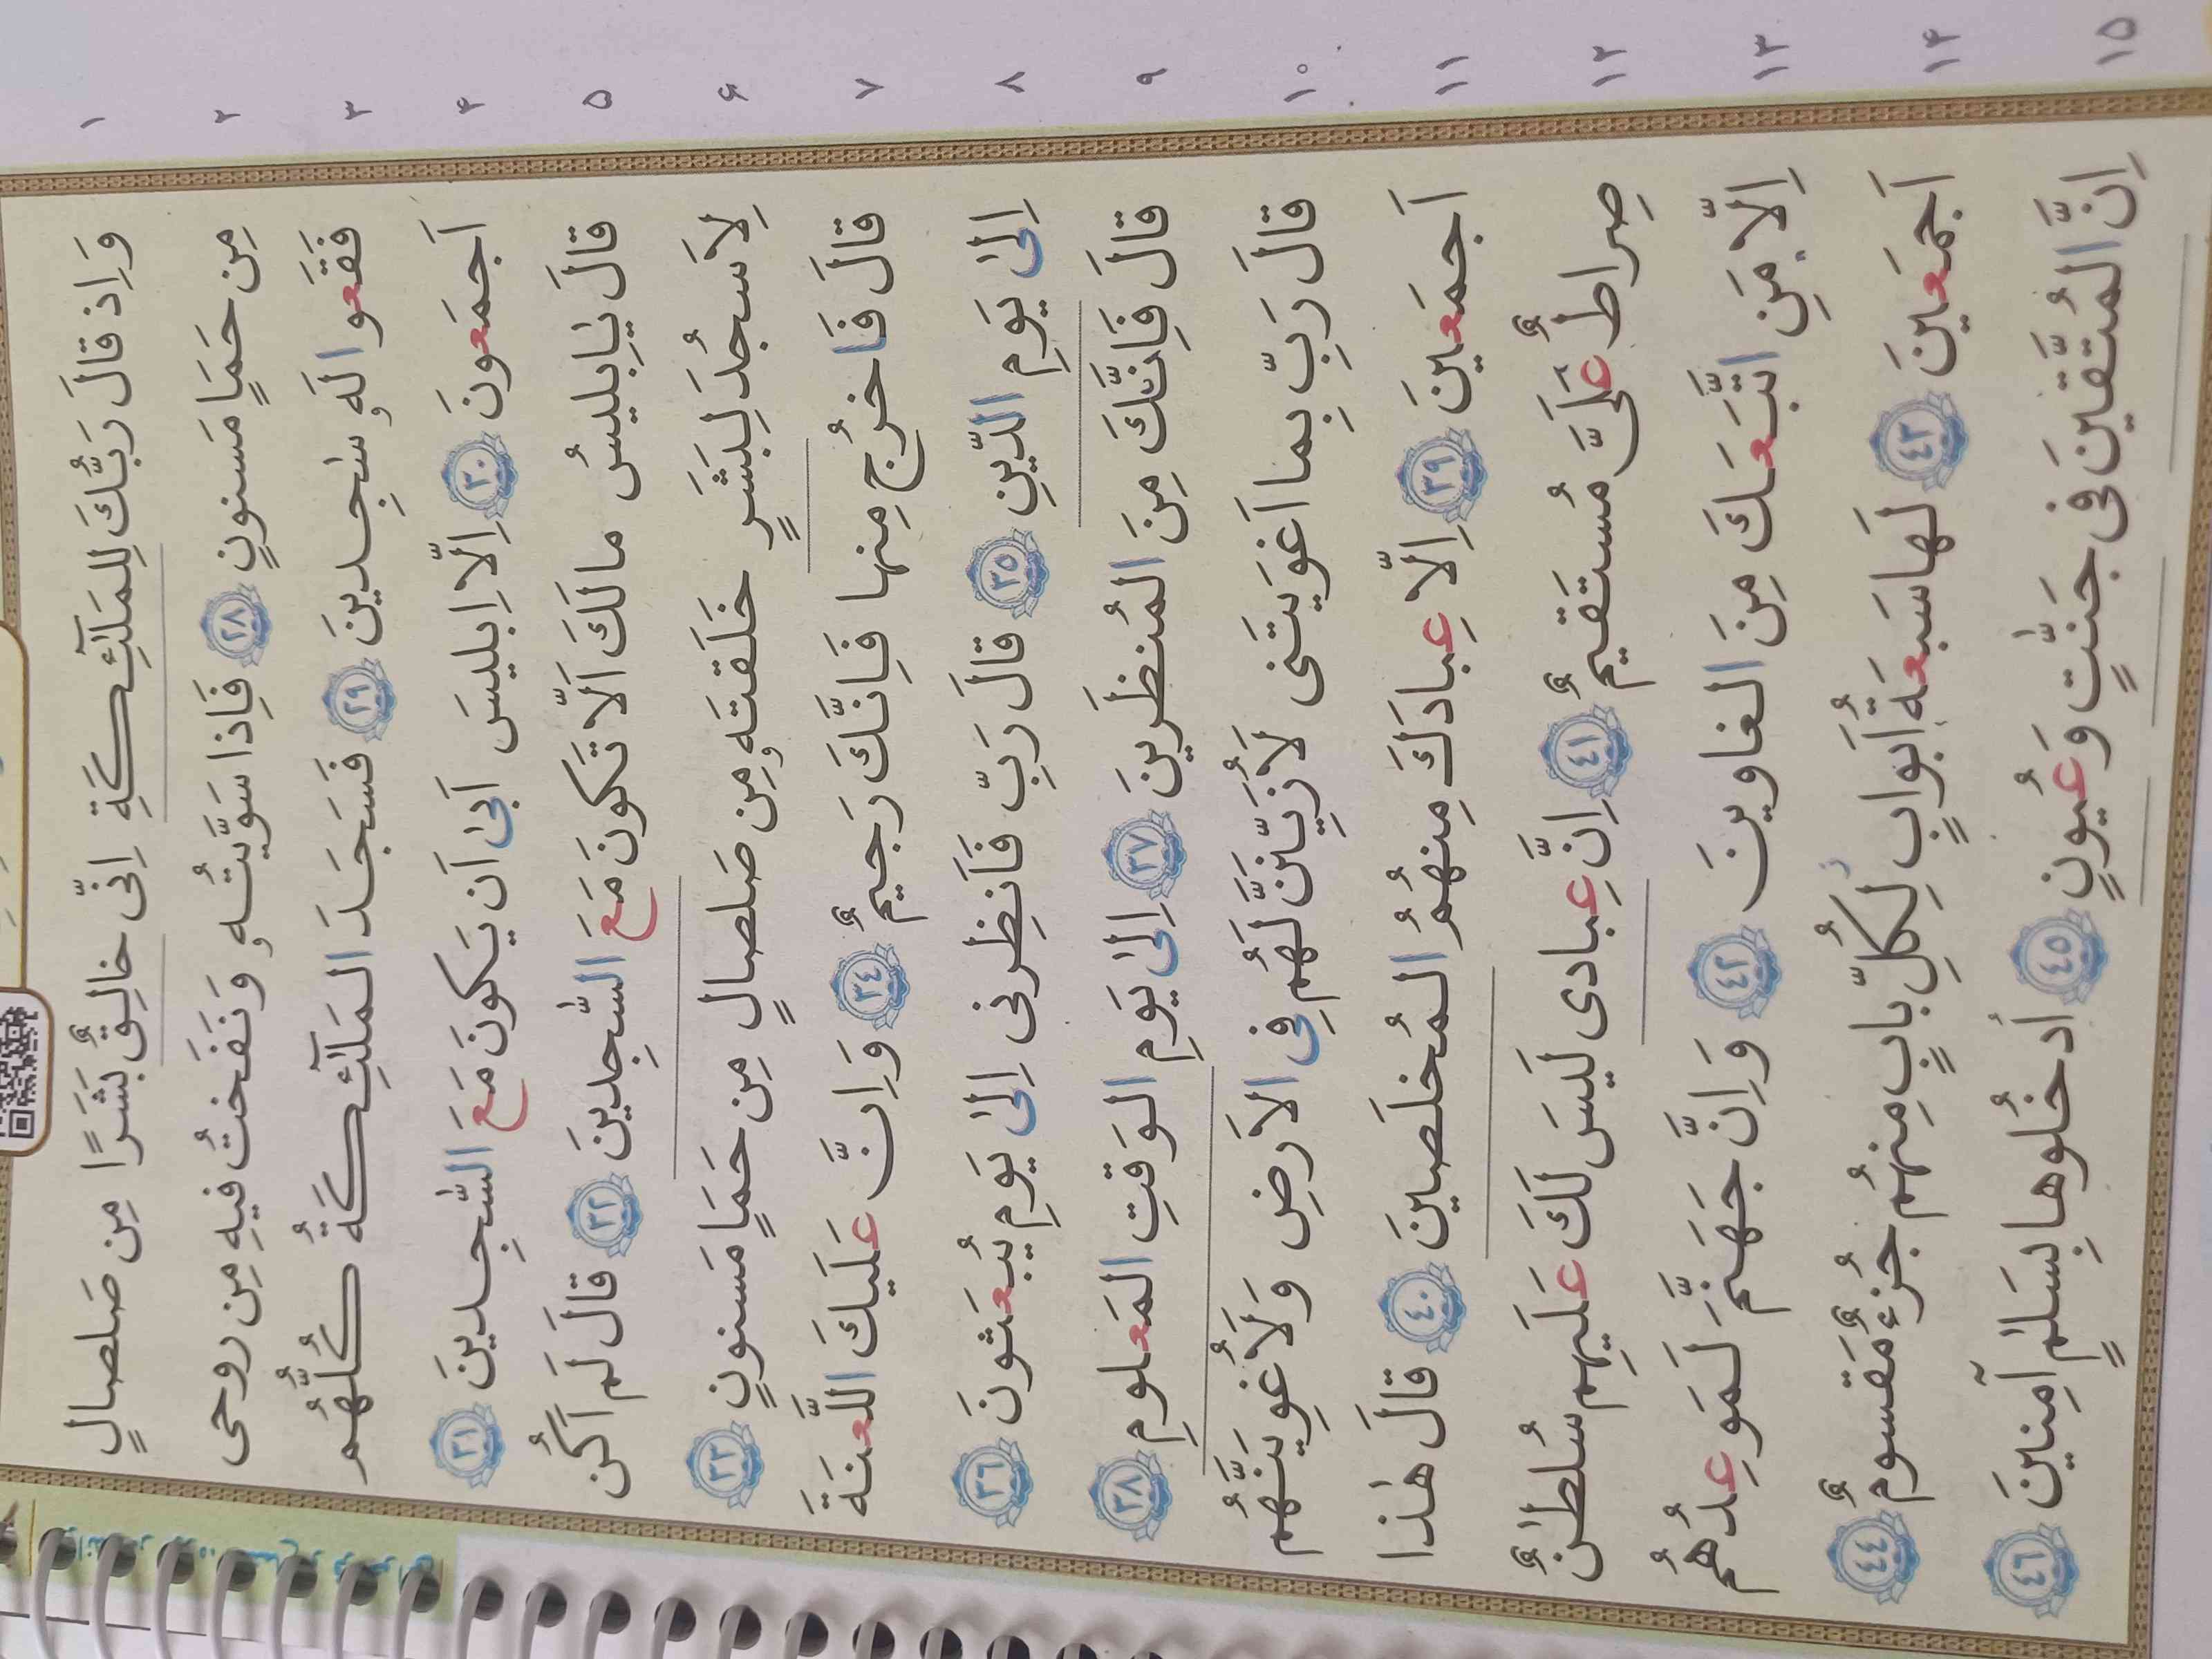 ١
وَاِذ قالَ رَبُّكَ لِلمَلٰٓئِكَةِ اِنّى خالِقٌ بَشَرًا مِن صَلصالٍ
٢
مِن حَمَاٍ مَسنونٍ ٢٨ فَاِذا سَوَّيتُهٗ وَنَفَختُ فيهِ مِن روحى
٣
فَقَعوا لَهٗ سٰجِدينَ ٢٩ فَسَجَدَ المَلٰٓئِكَةُ كُلُّهُم
۴
اَجمَعونَ ٣٠ اِلّا اِبليسَ اَبىٰ اَن يَكونَ مَعَ السّٰجِدينَ ٣١
۵
قالَ يٰاِبليسُ مالَكَ اَلّا تَكونَ مَعَ السّٰجِدينَ ٣٢ قالَ لَم اَكُن
۶
لِاَسجُدَ لِبَشَرٍ خَلَقتَهٗ مِن صَلصالٍ مِن حَمَاٍ مَسنونٍ ٣٣
٧
قالَ فَاخرُج مِنها فَاِنَّكَ رَجيمٌ ٣٤ وَاِنَّ عَلَيكَ اللَّعنَةَ
٨
اِلىٰ يَومِ الدّينِ ٣٥ قالَ رَبِّ فَاَنظِرنى اِلىٰ يَومِ يُبعَثونَ ٣٦
٩
قالَ فَاِنَّكَ مِنَ المُنظَرينَ ٣٧ اِلىٰ يَومِ الوَقتِ المَعلومِ ٣٨
١٠
قالَ رَبِّ بِما اَغوَيتَنى لَاُزَيِّنَنَّ لَهُم فِى الاَرضِ وَلَاُغوِيَنَّهُم
١١
اَجمَعينَ ٣٩ اِلّا عِبادَكَ مِنهُمُ المُخلَصينَ ٤٠ قالَ هٰذا
١٢
صِراطٌ عَلَىَّ مُستَقيمٌ ٤١ اِنَّ عِبادى لَيسَ لَكَ عَلَيهِم سُلطٰنٌ
١٣
اِلّا مَنِ اتَّبَعَكَ مِنَ الغاوينَ ٤٢ وَاِنَّ جَهَنَّمَ لَمَوعِدُهُم
١۴
اَجمَعينَ ٤٣ لَها سَبعَةُ اَبوابٍ لِكُلِّ بابٍ مِنهُم جُزءٌ مَقسومٌ ٤٤
١۵
اِنَّ المُتَّقينَ فى جَنّٰتٍ وَعُيونٍ ٤٥ اُدخُلوها بِسَلٰمٍ آمِنينَ ٤٦